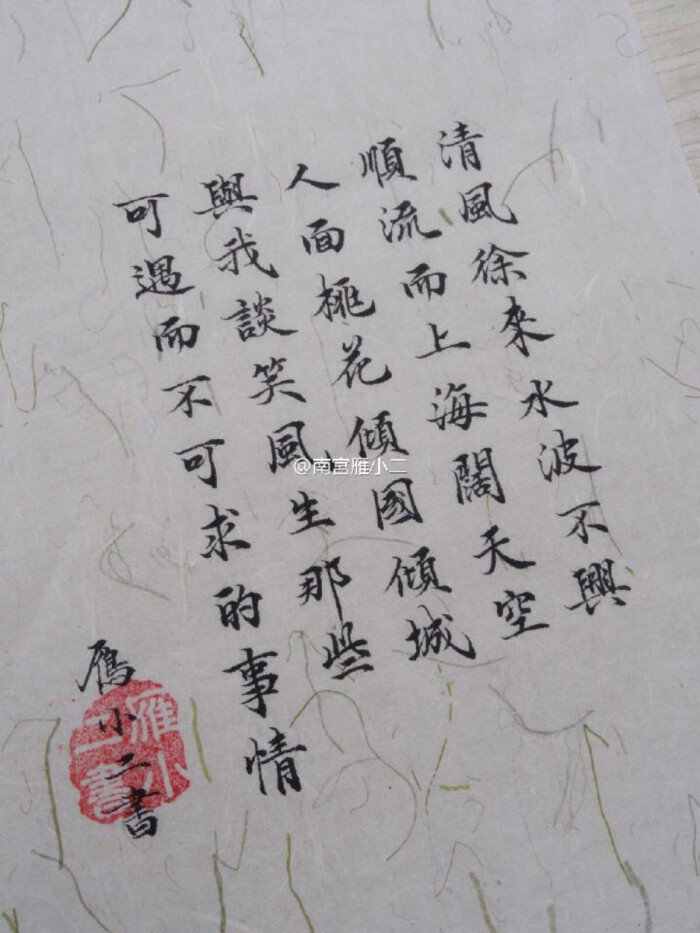 清風徐來水波不興
順流而上海闊天空
人面桃花傾國傾城
與我談笑風生那些
可遇而不可求的事情
雁小二書
雁小二書
@南宫雁小二